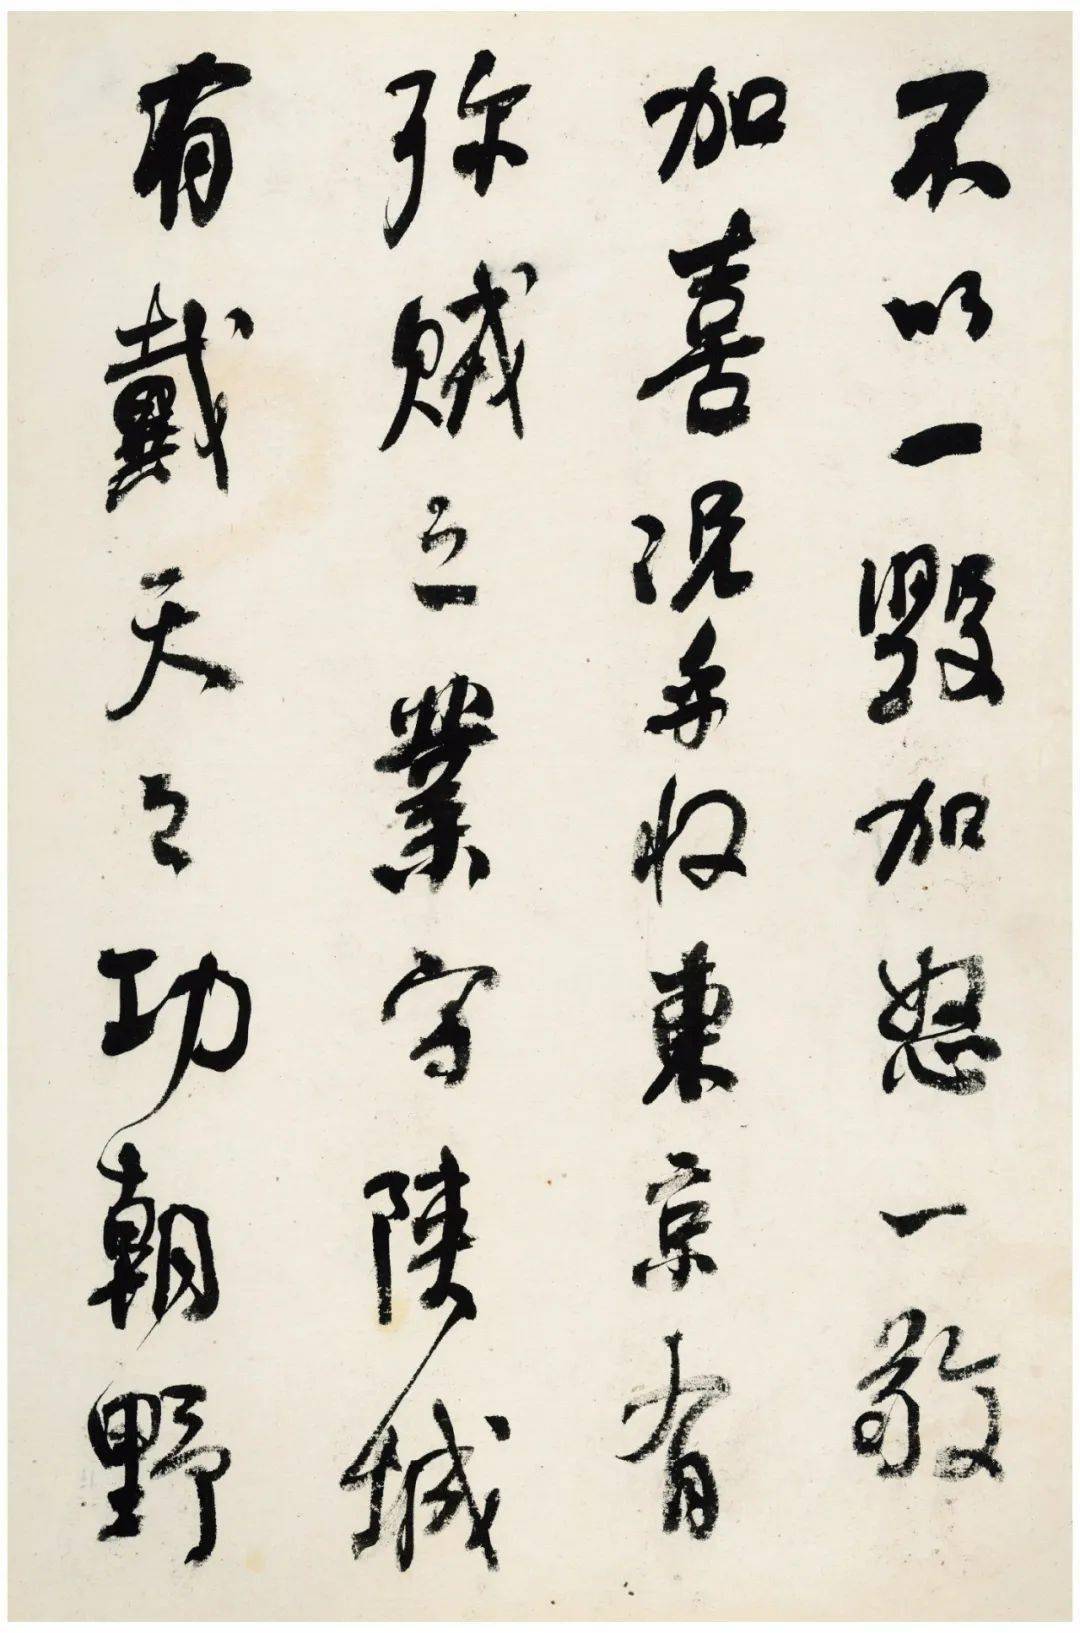 不以一毀加怒一敬
加喜況余收東京有
殄賊之業守陝城
有戴天之功朝野